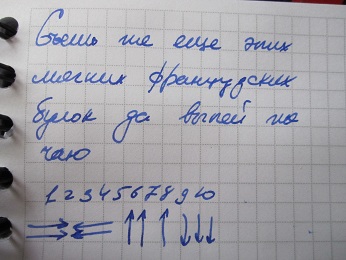 Съешь же еще этих
мягких французских
булок да выпей же
чаю
1 2 3 4 5 6 7 8 9 10
⇉ ⇇ ↑↑ ↑ ↓↓↓